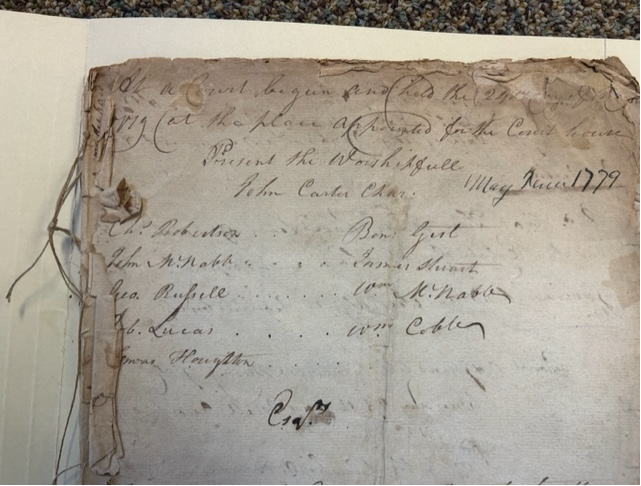 At a Court begun and held the 24th day of
1779 (at the place appointed for the Court house
Present the Worshipfull
John Carter Char:
May Term 1779
Chs. Robertson . . . Ben: Gist
John McNabb . . . . James Stuart
Geo. Russell . . . . . . Wm McNabb
Lucas . . . . . Wm Cobb
Houghton . . . . .
Esqrs